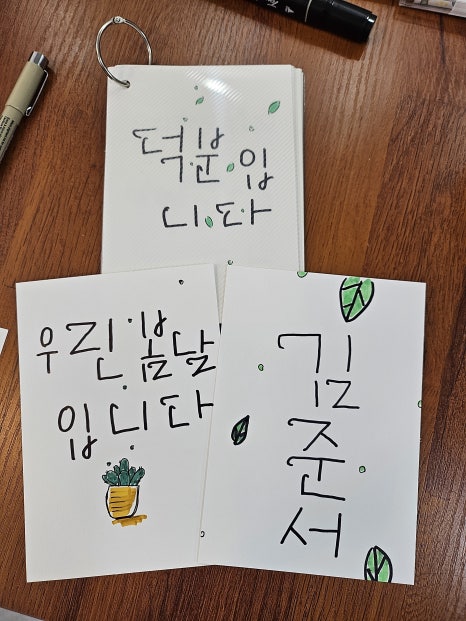 덕분입
니다
우린 봄날
입니다
김
준
서